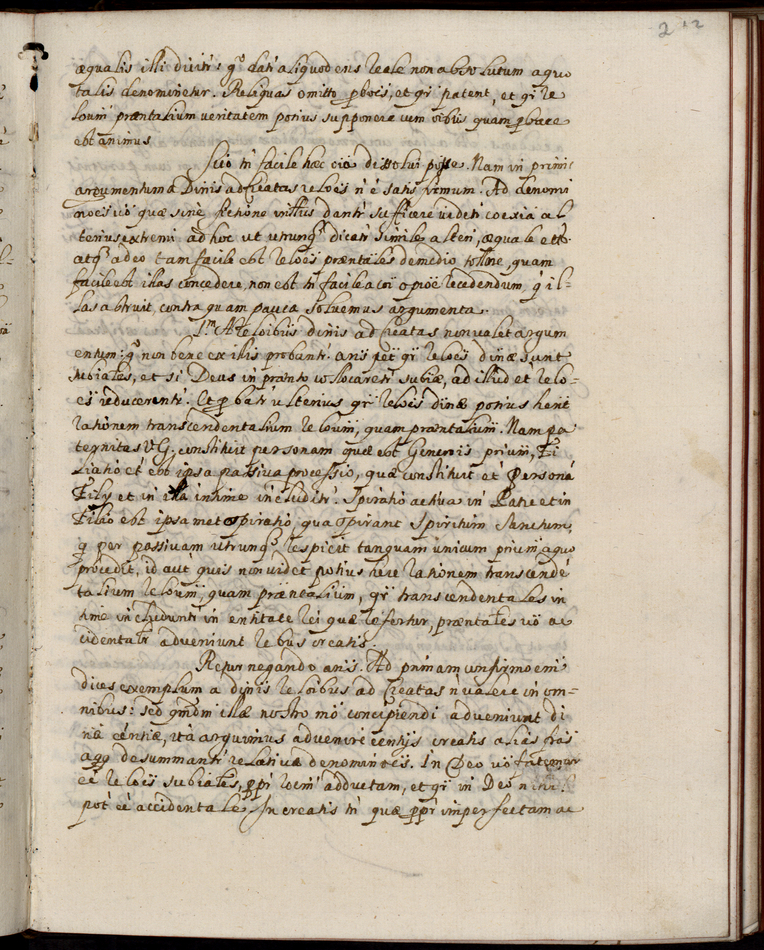 212
æqualis illi dicitr: gº datr aliquod ens reale non absolutum a quo
talis denominetur. Reliquas omitto pboēs, et qr̄ patent, et qr̄ re
loum præntalium veritatem potius supponere cum oibus quam pbare
est animus
Scio tn̄ facile hæc oia dissolui posse. Nam in primis
argumentum a Divinis ad creatas reloēs n̄ ē satis firmum. Ad denomi
noēs vō quæ sine fictione dantr sufficere videtr coexīa al
terius extremi ad hoc ut utrumq dicatr simile alteri, æquale etc.
atq adeo tam facile est reloēs præntales de medio tollere, quam
facile est illas concedere, non est tn̄ facile a coī opiōe recedendum, q il-
las astruit, contra quam pauca soluemus argumenta.
1m A reloibus divinis ad creatas non valet argum
entum: gº non bene ex illis probantr. ans pet qr̄ reloēs divinæ sunt
subiales, et si Deus in prænto collocaretr subiæ, ad illud et relo-
ēs reducerentr. Et pbatr ulterius qr̄ reloēs divinæ potius hent
rationem transcendentalium reloum, quam prænталium. Nam pa
ternitas V.G. constituit personam quæ est Generis prium, Fi
liatio et est ipsa passiua processio, quæ constituit et Personā
Filij et in illa intime includitr. Spiratio activa in Patre et in
Filio est ipsamet spiratio, qua spirant Spiritum Sanctum,
q per passivam utrumq respicit tanquam unicum prium a quo
procedit, id aut quis non videt potius here rationem transcendē
talium reloum, quam prænталium, qr̄ transcendentales in
time includuntr in entitate rei quæ refertur, præntales vō ac
cidentalr adveniunt rebus creatis.
Retur negando ans. Ad primam confirmōem
dices exemplum a divinis reloibus ad Creatas n̄ valere in om-
nibus: sed qmdm illæ nostro mō concipiendi adveniunt di
næ essentiæ, ita arguimus advenire essentijs creatis alias fras
a qq desummantr relativæ denominōēs. In Deo vō fatemur
eē reloēs subiales, ppr roēm adductam, et qr̄ in Deo n
pot eē accidentale. In creatis tn̄ quæ ppr imperfectam ac